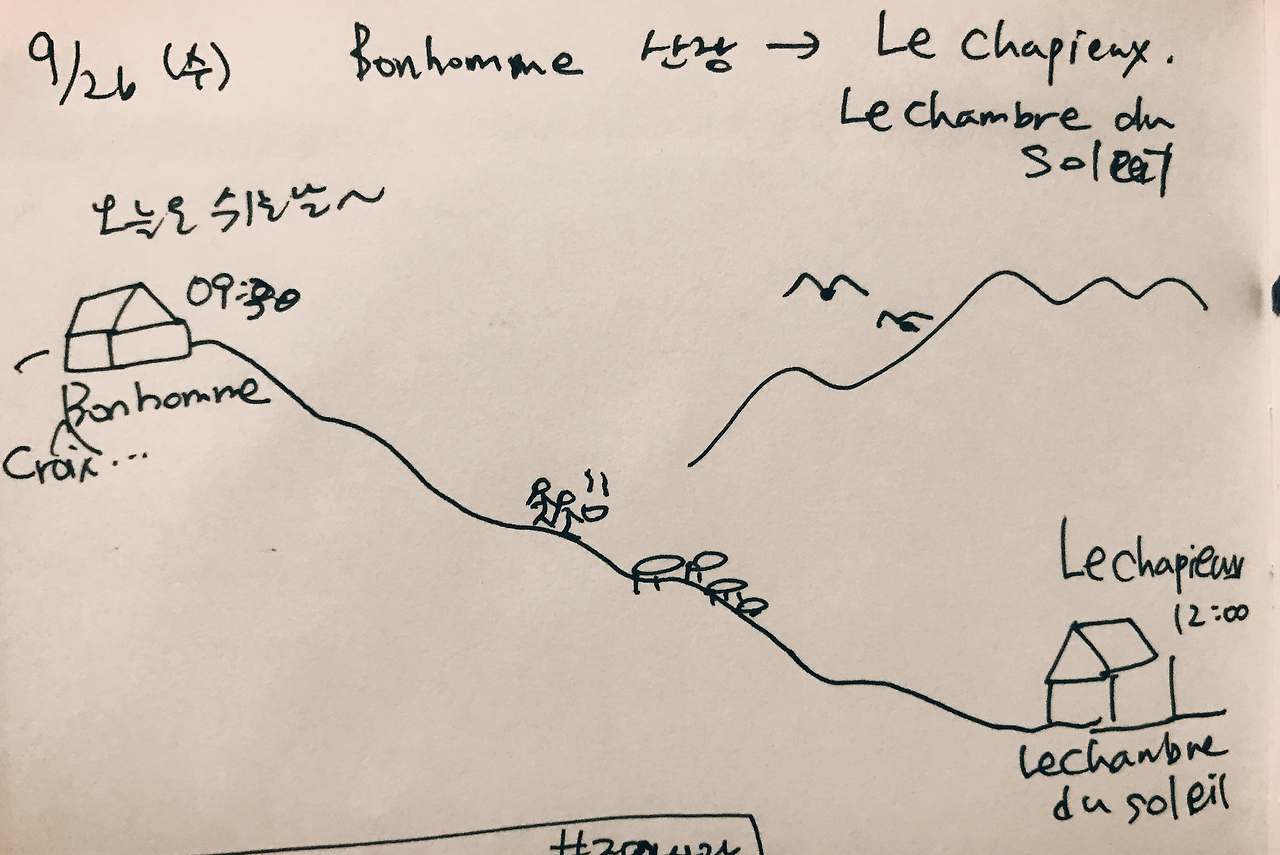 9/26 (수) Bonhomme 산장 → Le Chapieux.
Le chambre du
오늘은 쉬는날~
Bonhomme
Croix...
Le chapieux
12:00
Le chambre
du soleil